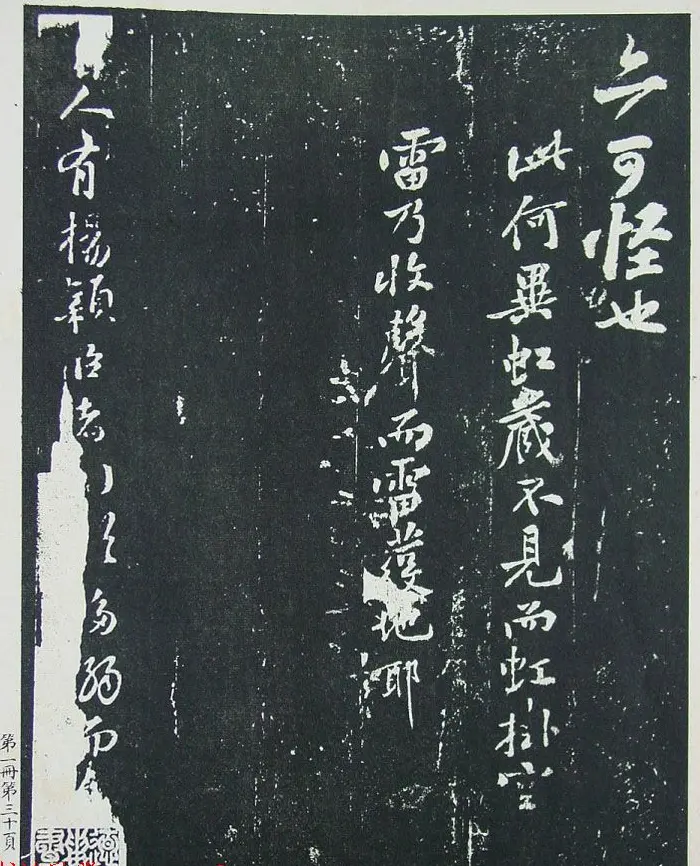 亦可怪也
此何異虹藏不見而虹掛空
雷乃收聲而雷發地耶
人有楊穎臣者
多弱而
第一冊第三十頁